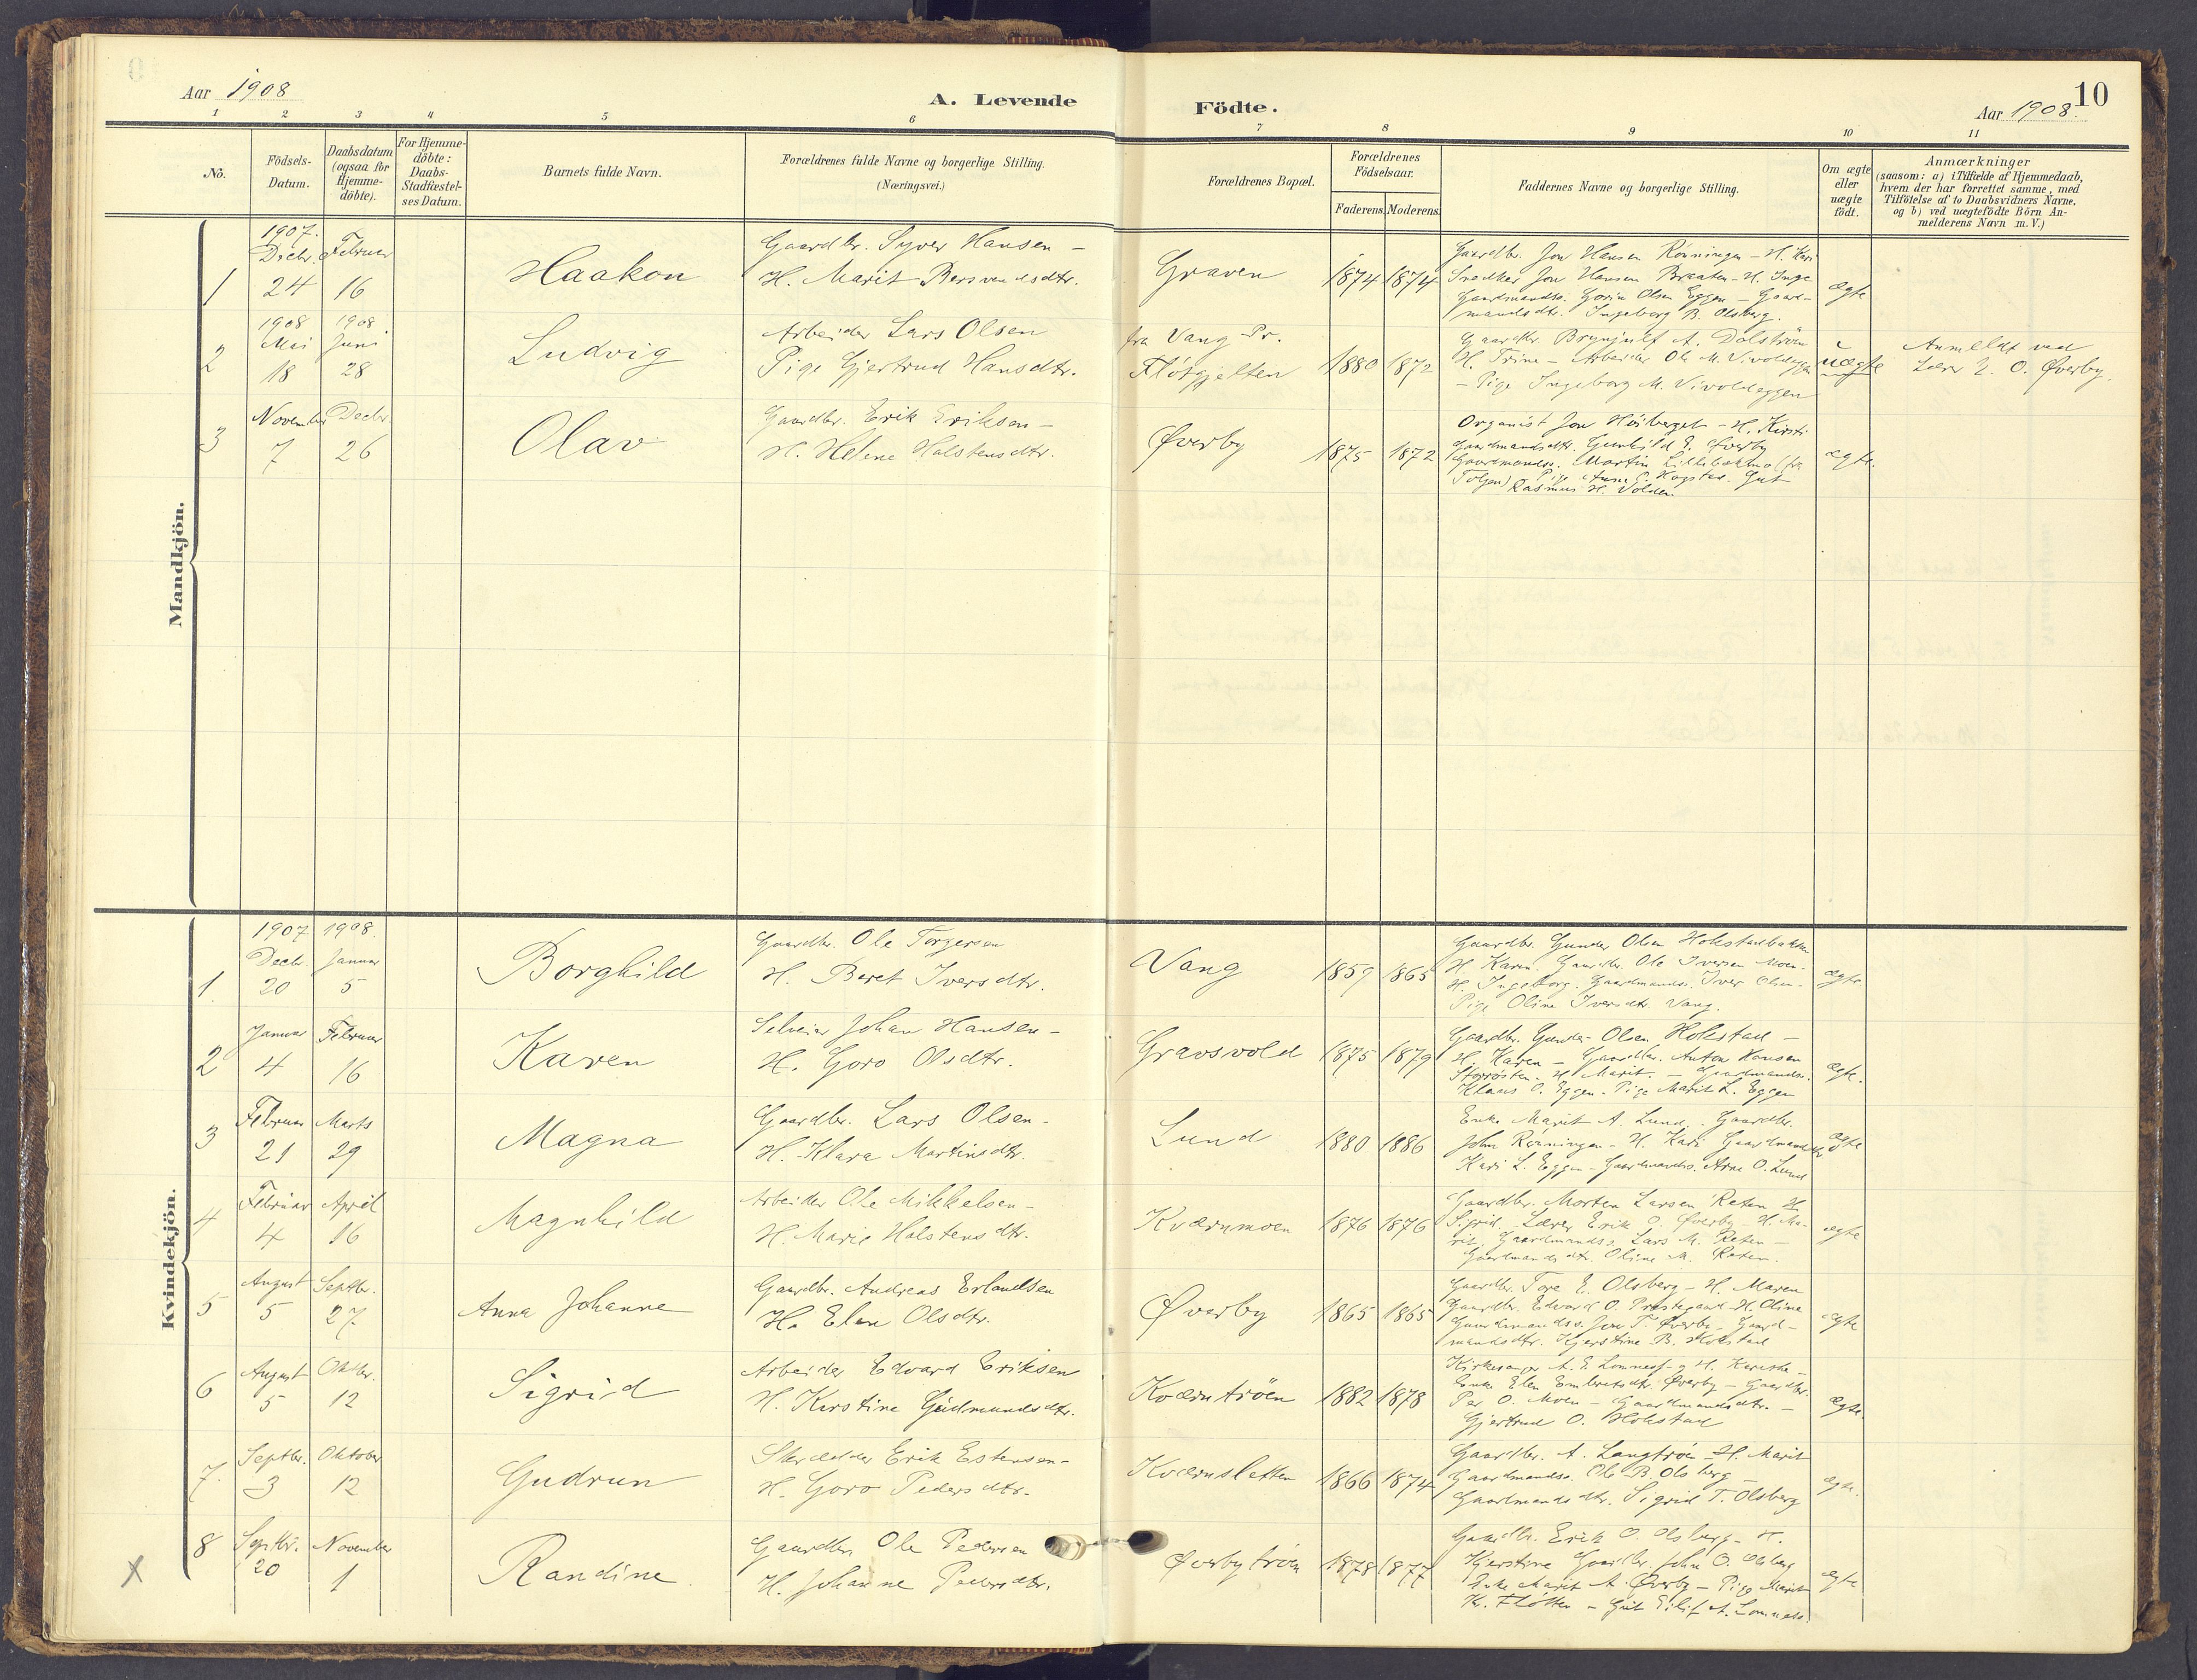 10
Aar 1908
A. Levende
Födte.
Aar 1908.
1 2 3 4 5 6 7 8 9 10 11
No.
Födsels-
Datum.
Daabsdatum
(ogsaa for
Hjemme-
döbte).
For Hjemme-
döbte:
Daabs-
Stadfæstel-
ses Datum.
Barnets fulde Navn.
Forældrenes fulde Navne og borgerlige Stilling.
(Næringsvei.)
Forældrenes Bopæl.
Forældrenes
Födselsaar.
Faderens. Moderens.
Faddernes Navne og borgerlige Stilling.
Om ægte
eller
uægte
födt.
Anmærkninger
(saasom: a) i Tilfælde af Hjemmedaab,
hvem der har forrettet samme, med
Tilföielse af to Daabsvidners Navne,
og b) ved uægtefödte Börn An-
melderens Navn m.V.)
Mandkjön.
1
1907.
Decbr.
24
Februar
16
Haakon
Gaardbr. Syver Hansen –
H. Marit Bersvendsdtr.
Graven
1874 1874
Gaardbr. Jon Hansen Rönningen – H. Kari
Snedker Jon Hansen Braaten – H. Inge
Gaardmands. Olsen Eggen – Gaard-
mandsdtr. Ingeborg B. Olsberg.
ægte
2
1908
Mai
18
1908.
Juni
28
Ludvig
Arbeider Lars Olsen
Pige Gjertrud Hansdtr.
fra Vang Pr.
Flötgjelten
1880 1872
Gaardbr. Brynjulf A. Dalströen
H. Trine – Arbeider Ole M. Vivoldeggen
– Pige Ingeborg M. Vivoldeggen
uægte
Anmeldt ved
Lærer E. O. Øverby.
3
November
7
Decbr.
26
Olav
Gaardbr. Erik Eriksen –
H. Helene Halstensdtr.
Øverby
1875 1872
Organist Jon Höiberget – H. Kirsti
Gaardmandsdtr. Gunhild E. Øverby
Gaardmands. Martin Lillebakmo (fra
Tolgen) Pige Anne Gut
Rasmus H. Volden
ægte.
Kvindekjön.
1.
1907
Decbr.
20
1908.
Januar
5
Borghild
Gaardbr. Ole Torgersen
H. Beret Iversdtr.
Vang
1859 1865
Gaardbr. Gunder Olsen Hokstadbakken
H. Karen. Gaardbr. Ole Iversen Moen –
H. Ingeborg. Gaardmands. Iver Olsen –
Pige Oline Iversdtr. Vang.
ægte
2
Januar
4
Februar
16
Karen
Selveier Johan Hansen –
H. Goro Olsdtr.
Gravsvold
1875 1879
Gaardbr. Gunder Olsen Hokstad –
H. Karen – Gaardbr. Anton Hansen
Storrösten. H. Marit. – Gaardmands.
Klaus O. Eggen. Pige Marit L. Eggen
ægte.
3
Februar
21
Marts
29
Magna
Gaardbr. Lars Olsen –
H. Klara Martinsdtr.
Lund
1880 1886
Enke Marit A. Lund. Gaardbr.
John Rönningen – H. Kari Gaardmandsdtr
Kari L. Eggen – Gaardmands. Arne O. Lund
ægte
4
Februar
4
April
16
Magnhild
Arbeider Ole Mikkelsen –
H. Marie Halstensdtr.
Kværnmoen
1876 1876
Gaardbr. Morten Larsen Röten H.
Sigrid. Lærer Erik O. Øverby – H. Ma-
rie. Gaardmands. Lars M. Röten –
Gaardmandsdtr. Oline M. Röten.
ægte
5
August
5
Septbr.
27
Anna Johanne
Gaardbr. Andreas Erlandsen
H. Elen Olsdtr.
Øverby
1865 1865
Gaardbr. Tore E. Olsberg – H. Maren
Gaardbr. Edvard O. Prestegaard – H. Oline
Gaardmands. Jon T. Øverby – Gaard-
mandsdtr. Kjerstine B. Hokstad
ægte
6
August
5
Oktbr.
12
Sigrid
Arbeider Edvard Eriksen
H. Kerstine Gudmundsdtr.
Kværntröen
1882 1878
Kirkesanger A. E. og H.
Enke Elen Embretsdtr. Øverby – Gaardbr.
Per O. Moen – Gaardmandsdtr. –
Gjertrud O. Hokstad
ægte.
7.
Septbr.
3
Oktober
12
Gudrun
Skrædder Erik Estensen –
H. Goro Pedersdtr.
Kværnsletten
1866 1874
Gaardbr. A. Langtröen – H. Marit
Gaardmands. Ole B. Olsberg –
Gaardmandsdtr. Sigrid T. Olsberg
ægte.
8
Septbr.
20
November
1
Randine.
Gaardbr. Ole Pedersen
H. Johanne Pedersdtr.
Øverbytröen
1878 1877
Gaardbr. Erik O. Olsberg – H.
Kjerstine Gaardbr. John O. Olsberg
Enke Marit A. Øverby – Pige Marit
K. Flötten – Gut Eilif A.
ægte
X